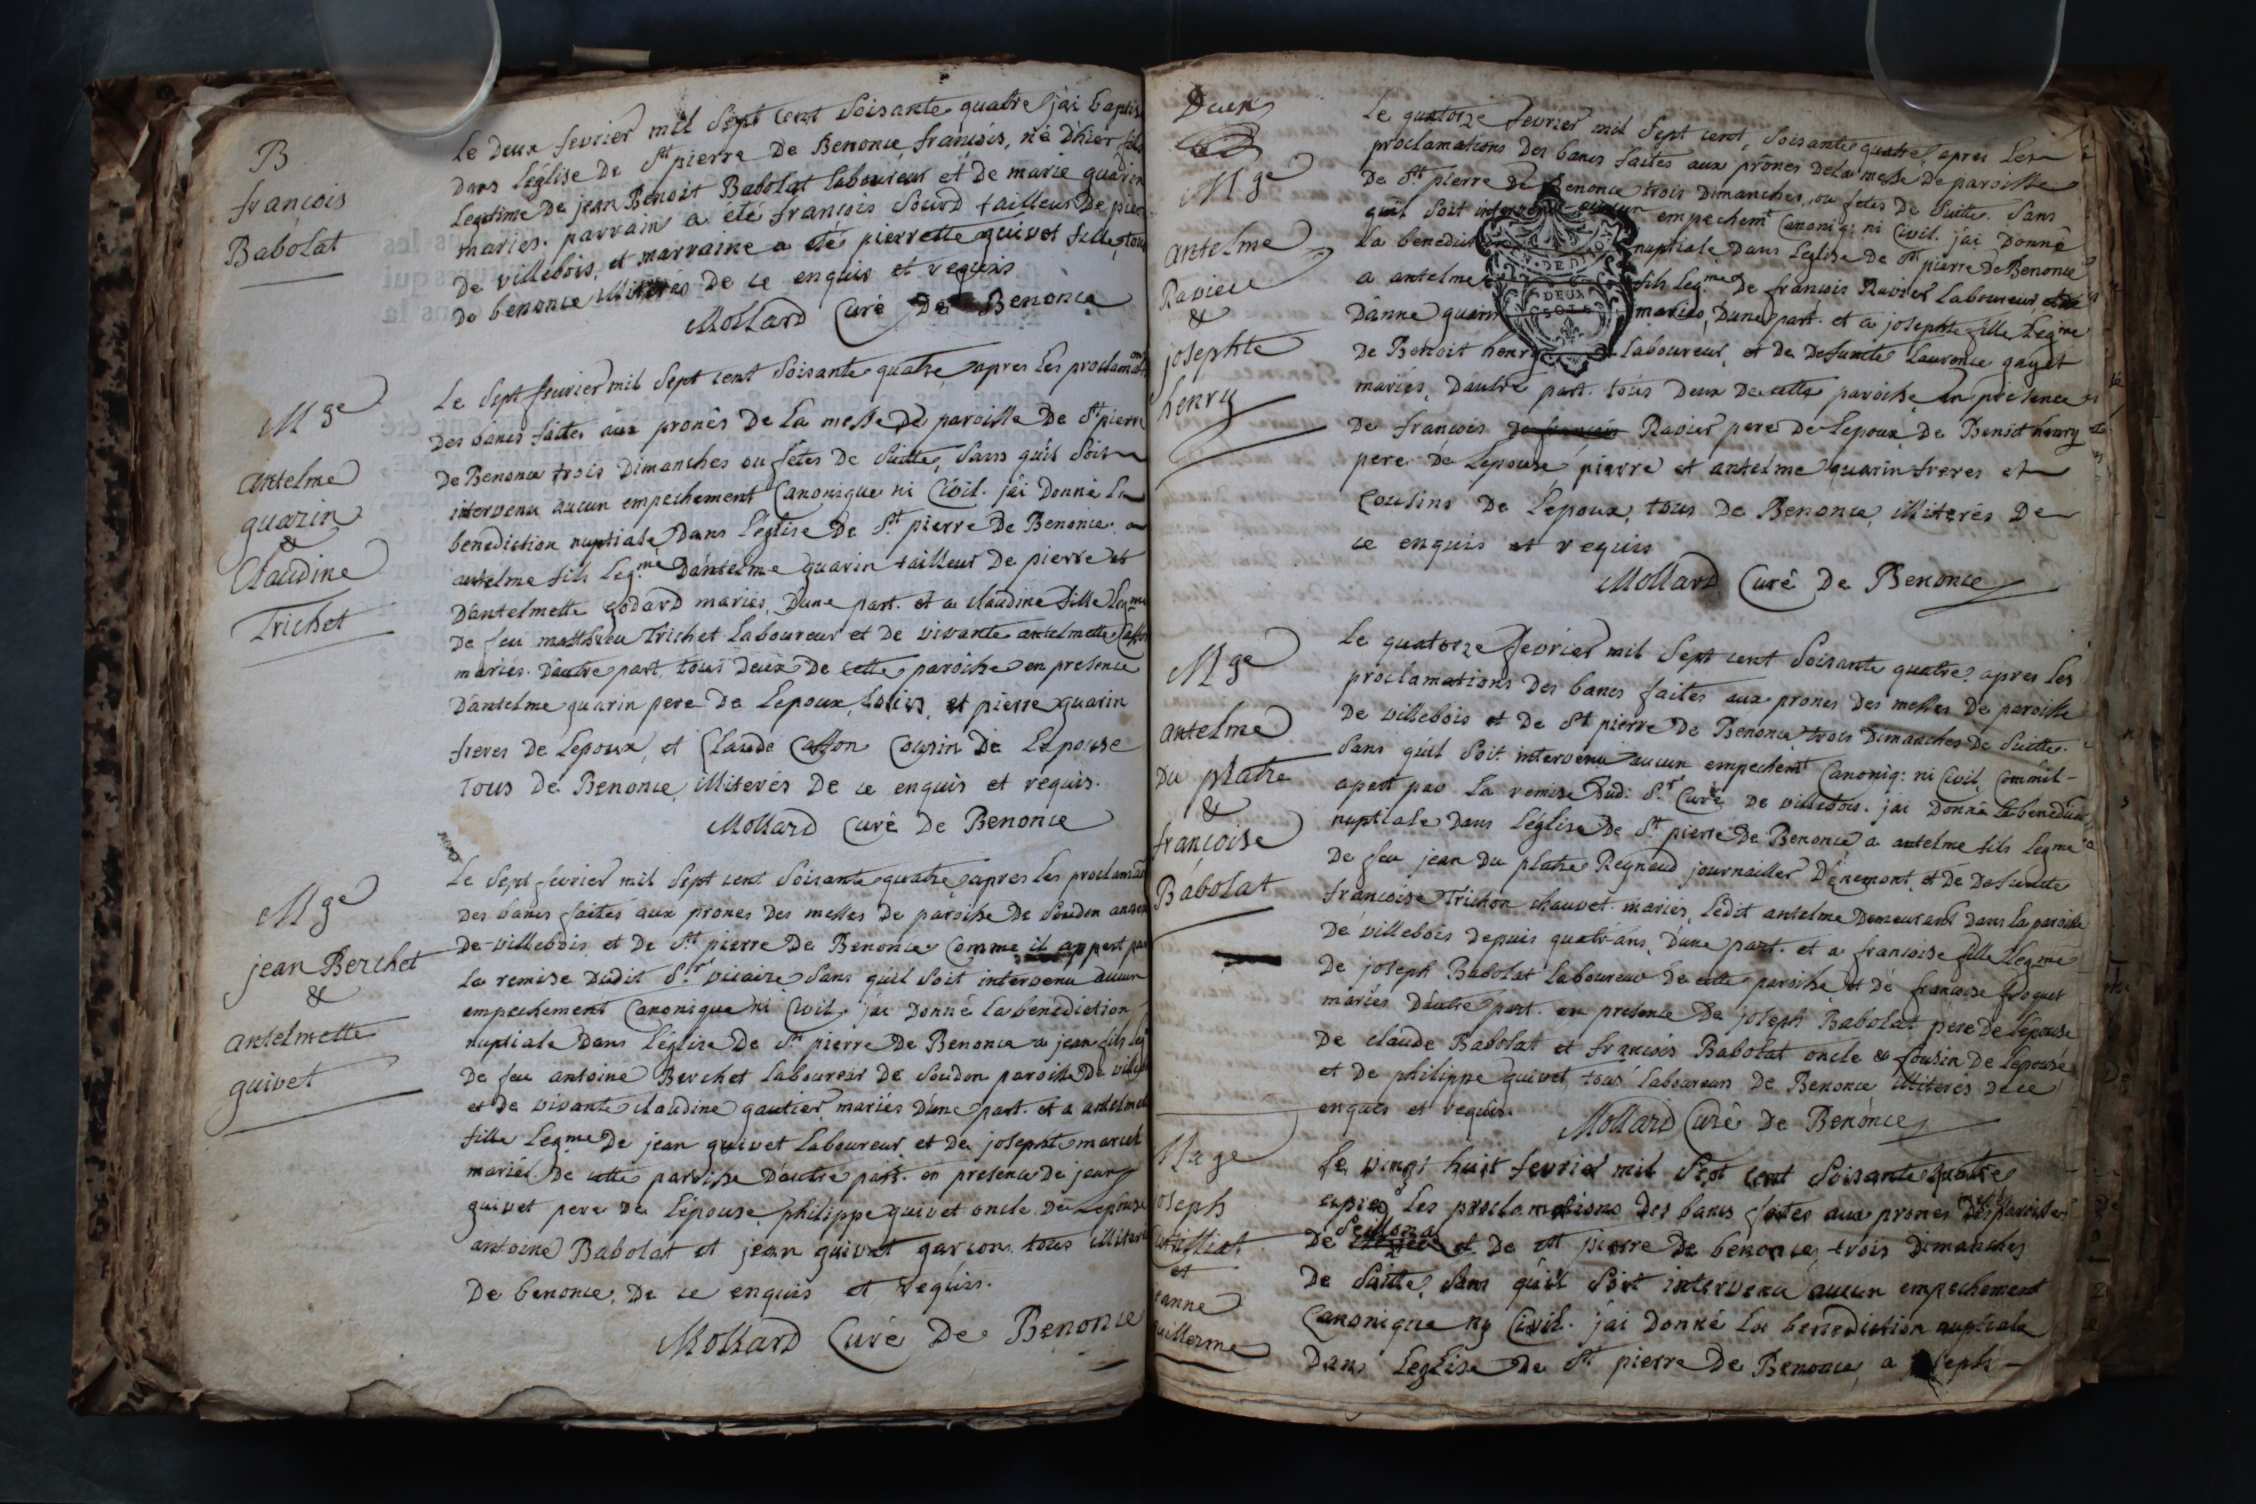 B
francois
Babolat
Le Deux fevrier mil sept cent soisante quatre j'ai baptisé
Dans l'eglise de St pierre De Benonce, francois, né d'hier fils
Legitime De jean Benoit Babolat laboureur et de marie quarin
mariés. parrain a été francois sourd tailleur De pier
De villebois, et marraine a été pierrette quivet fille, tous
De benonce illiterés de ce enquis et requis
Mollard Curé De Benonce
Mge
antelme
quarin
&
Claudine
Trichet
Le Sept fevrier mil Sept cent Soisante quatre apres les proclamaons
Des bancs faites aux prônes De La messe De paroisse De St pierre
De Benonce trois Dimanches ou fêtes De Suitte, Sans qu'il Soit
intervenu aucun empechement Canonique ni Civil. j'ai Donné La
benediction nuptiale Dans l'eglise De St pierre De Benonce a
antelme fils Legme D'antelme quarin tailleur De pierre et
D'antelmette godard mariés, D'une part. et a claudine fille Legme
De feu matthieu Trichet Laboureur et de vivante antelmette Caston
mariés. D'autre part, tous Deux De cette paroisse en presence
D'antelme quarin pere De Lepoux, Louis, et pierre quarin
freres De Lepoux, et Claude Caston Cousin De Lepouse
Tous De Benonce, illiterés De ce enquis et requis.
Mollard Curé De Benonce
Mge
jean Berchet
&
antelmette
quivet
Le Sept fevrier mil Sept cent Soisante quatre apres Les proclamaons
Des bancs faites aux prones Des messes De paroisse De Soudon annexe
De villebois, et De St pierre De Benonce Comme il appert par
La remise Dudit Sr. vicaire Sans qu'il Soit intervenu aucun
empechement Canonique ni Civil, j'ai Donné La benediction
nuptiale Dans l'eglise De St pierre De Benonce a jean fils Leg
De feu antoine Berchet Laboureur De Soudon paroisse De villeb
et De vivante claudine gautier mariés D'une part. et a antelmet
fille Legme De jean quivet Laboureur, et De josephte marcel
mariés De cette paroisse D'autre part. en presence De jean
quivet pere De L'epouse, philippe quivet oncle De Lepouse
antoine Babolat et jean quivet garçons. tous illiteré
De benonce, De ce enquis et requis.
Mollard Curé De Benonce
Deux
Mge
antelme
Ravier
&
josephte
henry
Le quatorze fevrier mil Sept cent, Soisante quatre, apres Les
proclamations Des bancs faites aux prônes De La messe De paroisse
De St pierre De Benonce trois Dimanches, ou fetes De Suitte. Sans
qu'il Soit intervenu aucun empechemt Canoniq: ni Civil. j'ai Donné
La benedict nuptiale Dans L'eglise De St pierre De Benonce
a antelme fils Legme De francois Ravier Laboureur, et
D'anne quarin mariés, D'une part. et a josephte fille Legme
De Benoit henry Laboureur, et De Defuncte Laurence gayet
mariés, D'autre part. tous Deux De cette paroisse, en presence
De francois De francois Ravier pere De Lepoux, De Benoit henry
pere De Lepouse, pierre et antelme quarin freres et
Cousins De Lepoux, tous De Benonce, illiterés De
ce enquis et requis
Mollard Curé De Benonce
Mge
antelme
Du platre
&
françoise
Babolat
Le quatorze fevrier mil Sept cent Soisante quatre, apres Les
proclamations Des bancs faites aux prones Des messes De paroisse
De villebois et De St pierre De Benonce, trois Dimanches De Suitte.
Sans qu'il Soit intervenu aucun empechemt Canoniq: ni Civil, Comme il
apert par La remise Dud: Sr Curé De villebois. j'ai Donné La benedicon
nuptiale Dans L'eglise De St pierre De Benonce a antelme fils Legme
De feu jean Du platre Reynaud journailler D'enemont, et De Defuncte
francoise Trichon chauvet mariés, Ledit antelme Demeurant Dans La paroisse
De villebois Depuis quatr'ans, D'une part. et a francoise fille Legme
De joseph Babolat Laboureur De cette paroisse et De francoise froquet
mariés D'autre part. en presence De joseph Babolat pere De Lepouse
De claude Babolat et francois Babolat oncle & Cousin De Lepouse
et De philippe quivet, tous Laboureurs De Benonce illiterés De ce
enquis et requis.
Mollard Curé De Benonce
Mage
joseph
et
jeanne
guillerme
Le vingt huit fevrier mil Sept cent Soisante quatre
apres Les proclamations Des bancs faites aux prones Des paroisses
De et De St pierre De benonce, trois Dimanches
De Suitte, Sans qu'il Soit intervenu aucun empechement
Canonique ny Civil. j'ai Donné La benediction nuptiale
Dans L'eglise De St pierre De Benonce, a joseph